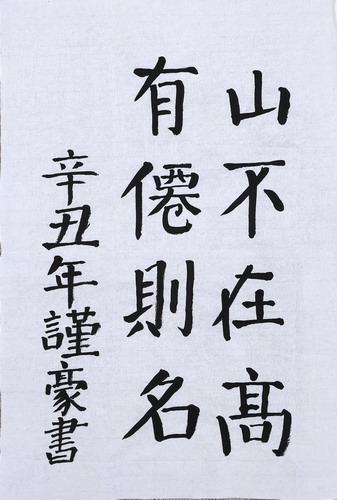 山不在高
有僊則名
辛丑年謹豪書